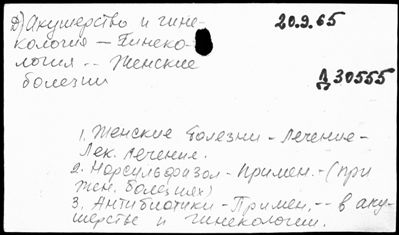 Д) Акушерство и гине-
кология — Гинеко-
логия -- Женские
болезни
20.9.65
Д 30555
1. Женские болезни - Лечение -
Лек. лечение.
2. Норсульфазол - Примен. - (при
жен. болезнях)
3. Антибиотики - Примен. -- в аку-
шерстве и гинекологии.